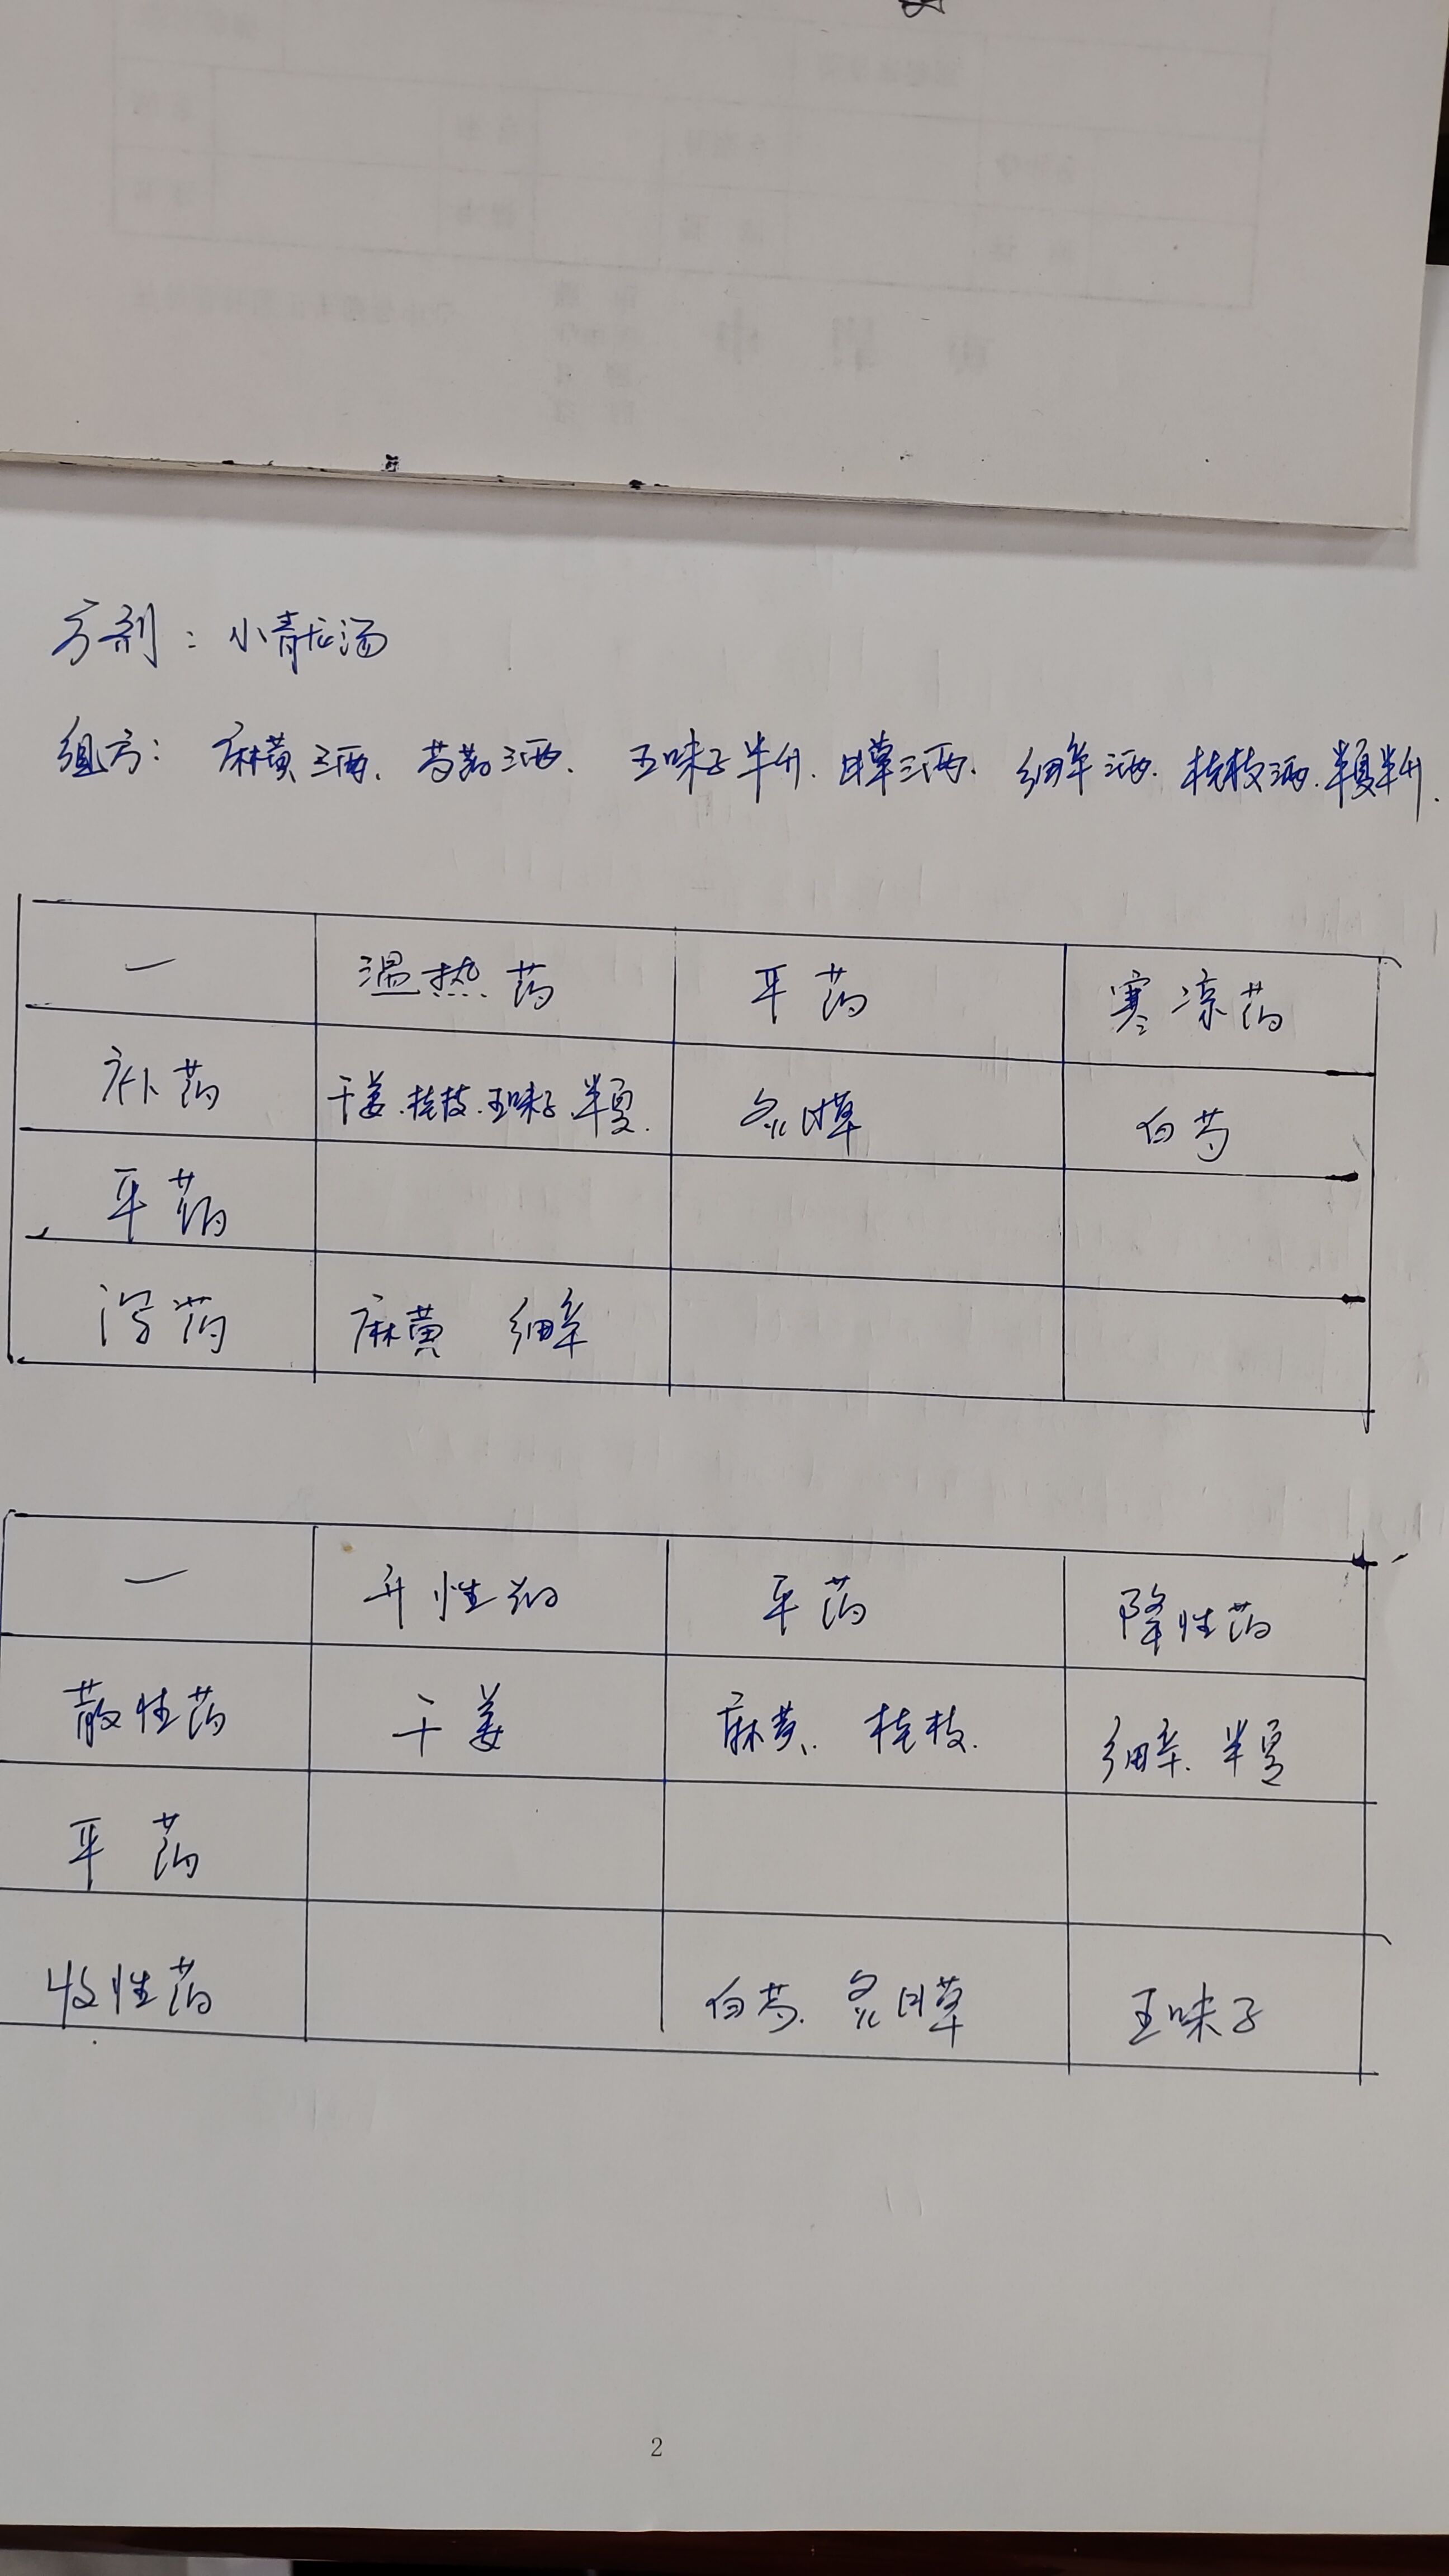 方剂：小青龙汤
组方：麻黄三两、芍药三两、五味子半升、甘草三两、细辛三两、桂枝三两、半夏半升、
一 温热药 平药 寒凉药
补药 干姜、桂枝、五味子、半夏、 炙甘草 白芍
平药
泻药 麻黄 细辛
一 升性药 平药 降性药
散性药 干姜 麻黄、桂枝、 细辛、半夏
平药
收性药 白芍、炙甘草 五味子
2